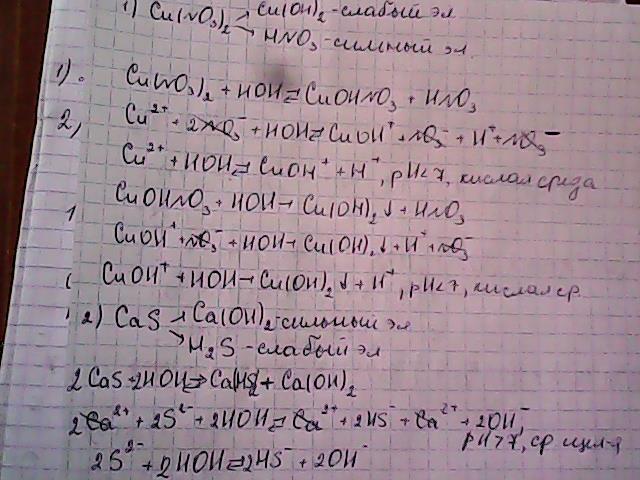 1) Cu(NO₃)₂ → Cu(OH)₂ - слабый эл
→ HNO₃ - сильный эл
1). Cu(NO₃)₂ + HOH ⇄ CuOHNO₃ + HNO₃
2) Cu²⁺ + 2NO₃⁻ + HOH ⇄ CuOH⁺ + NO₃⁻ + H⁺ + NO₃⁻
Cu²⁺ + HOH ⇄ CuOH⁺ + H⁺, pH<7, кислая среда
CuOHNO₃ + HOH → Cu(OH)₂↓ + HNO₃
CuOH⁺ + NO₃⁻ + HOH → Cu(OH)₂↓ + H⁺ + NO₃⁻
CuOH⁺ + HOH → Cu(OH)₂↓ + H⁺, pH<7, кислая ср.
2) CaS → Ca(OH)₂ - сильный эл
→ H₂S - слабый эл
2CaS + 2HOH ⇄ Ca(HS)₂ + Ca(OH)₂
2Ca²⁺ + 2S²⁻ + 2HOH ⇄ Ca²⁺ + 2HS⁻ + Ca²⁺ + 2OH⁻,
pH>7, ср щел-я
2S²⁻ + 2HOH ⇄ 2HS⁻ + 2OH⁻